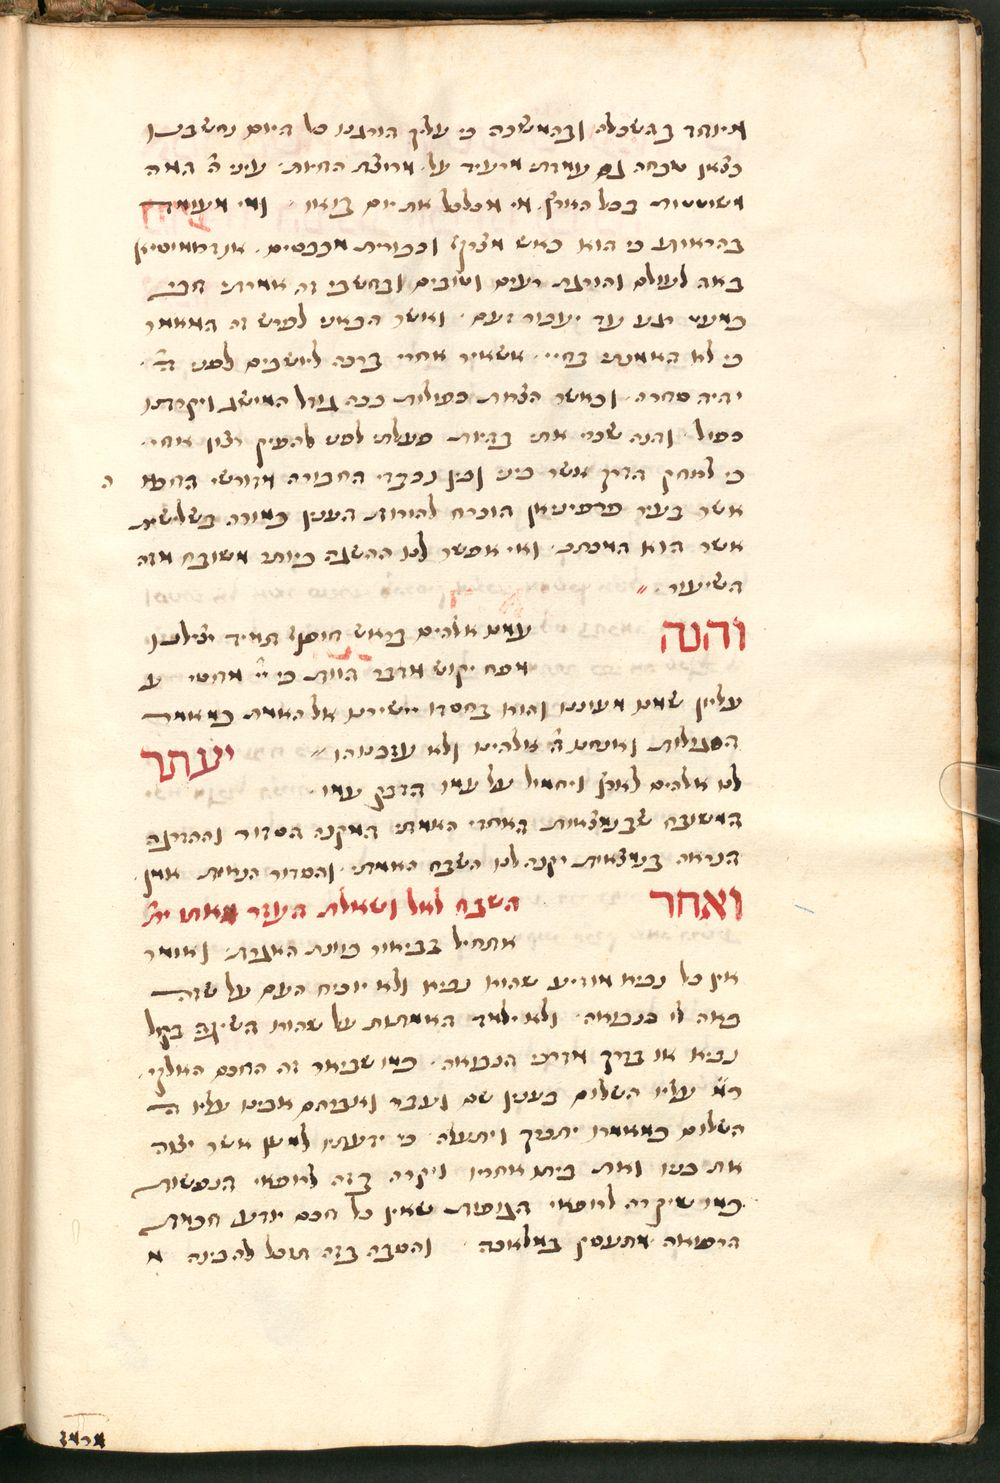 מיוחד בהשכלה ובהמשכה כי עליך הורגנו כל היום נחשבנו
כצאן טבחה גם עמדתי מרעיד על מרוצת החיות עיני ה' המה
משוטטות בכל הארץ מי מכלכל את יום בואו ומי העומד
בהראותו כי הוא כאש מצרף וכבורית מכבסים
באה לעולם והורגת רעים וטובים ובחשבי זה אמרתי חבי
כמעט רגע עד יעבור זעם ואשר הביאני לפרש זה המאמר
כי לא האמנתי בחיי אשאיר אחרי ברכה ליושבים לפני ה'
יהיה סחרה וכאשר הצרות כפולות ככה גודל המישג ויקרתו
כפול והנה שכרי אתי בהיות פעלתי לפני להפיק רצון אחי
כי למחק הדרך אשר ביני ובין נכבדי החבורה מדורשי החכמה
אשר בעיר הוכרח להורות הענין באורה בשלישית
אשר הוא המכתב ואי אפשר לנו ההשגה ביותר משובח מזה
השיעור
והנה עמנו אלהים בראש חוסן תמיד יצילנו
מפח יקוש מדבר הוות כי י"י מחסי
עליון שמנו מעוננו והוא בחסדו יישירנו אל האמת כמאמר
הסגולות ואנחנו ה' אלהינו ולא עזבנוהו יעתר
לנו אלהים לארץ ויחמול על עמו הדבק עמו
המשובח שבנמצאות האחד האמתי המקנה הסדור וההדרגה
הנראה בנמצאות יקנה לנו השבח האמתי והסדור הנאות אמן
ואחר השבח לאל ושאלת העזר מאתו ית'
אתחיל בביאור כוונת האגרת ואומר
אין כל נביא מודיע שהוא נביא ולא יוכיח העם על שזה
בזה לו בנבואה ולא ילמד האמתות על שהוא השיגם בקול
נביא או בדרך מדרכי הנבואה כמו שביאר זה החכם האלקי
ר"מ עליו השלום בענין שם ועבר ואברהם אבינו עליו ה
השלום כמאמרו יתברך ויתעלה כי ידעתיו למען אשר יצוה
את בניו ואת ביתו אחריו ויקרה בזה לרופאי הנפשות
כמו שיקרה לרופאי הגופות שאין כל חכם יודע חכמת
הרפואה מתעסק במלאכה והסבה בזה תוכל להבינה מ